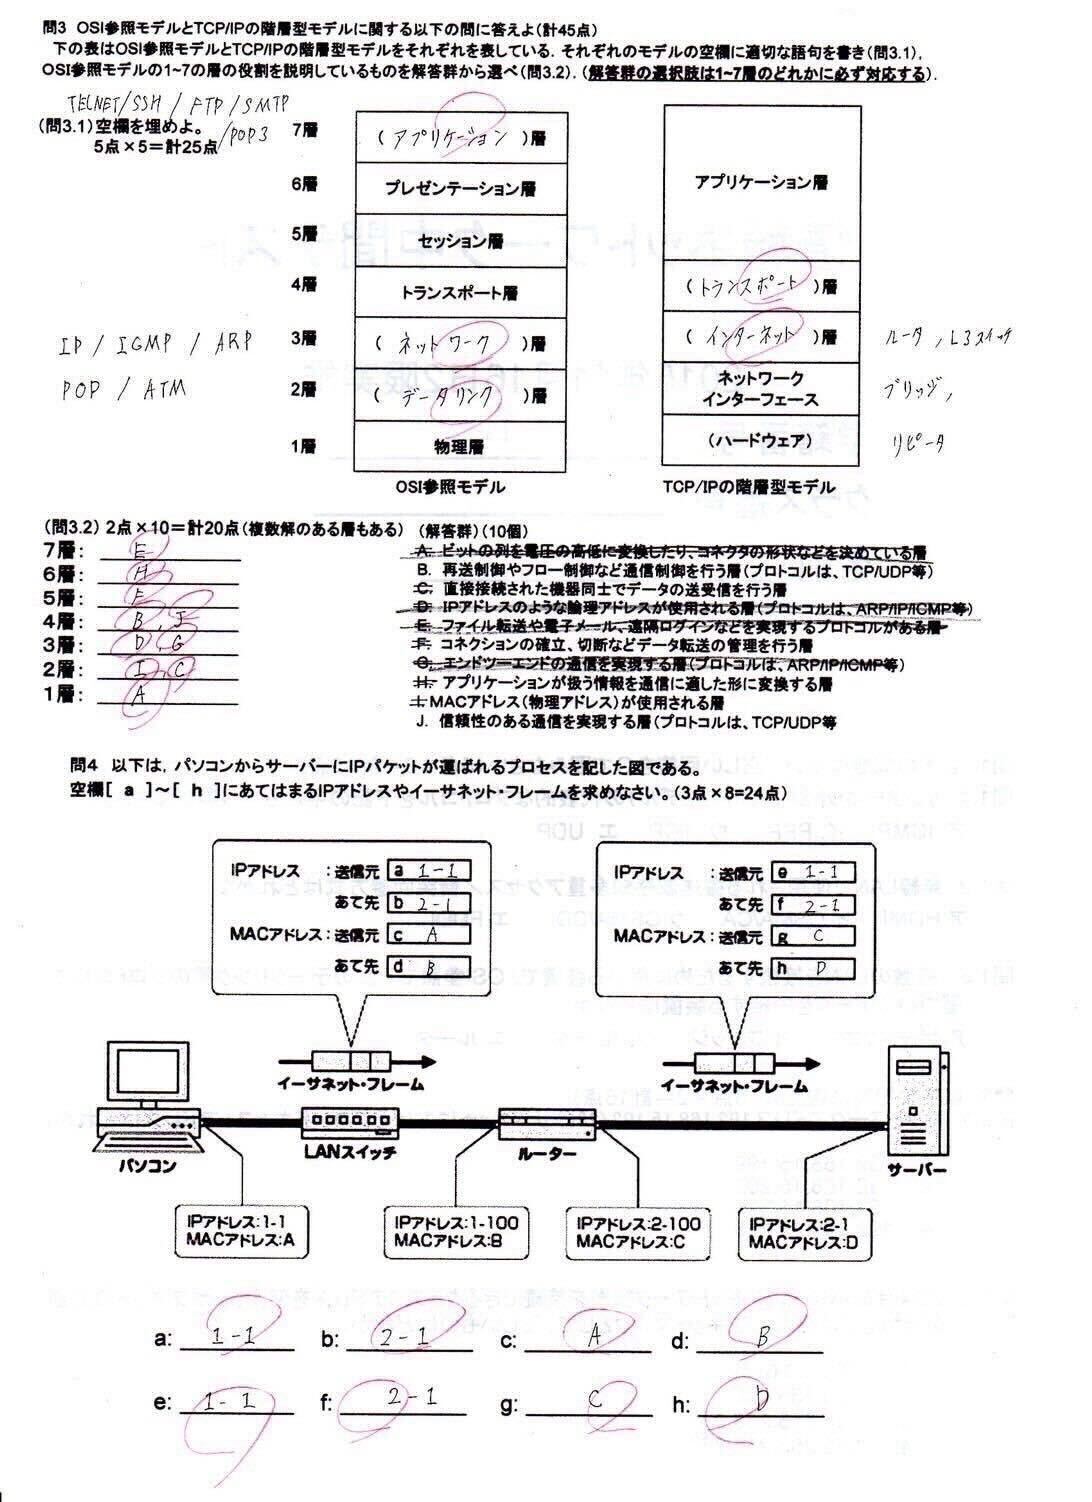 問3 OSI参照モデルとTCP/IPの階層型モデルに関する以下の問に答えよ(計45点)
下の表はOSI参照モデルとTCP/IPの階層型モデルをそれぞれを表している. それぞれのモデルの空欄に適切な語句を書き(問3.1),
OSI参照モデルの1~7の層の役割を説明しているものを解答群から選べ(問3.2). (解答群の選択肢は1~7層のどれかに必ず対応する).
TELNET/SSH / FTP / SMTP
/POP3
(問3.1)空欄を埋めよ。
5点×5=計25点
7層 (アプリケーション)層
6層 プレゼンテーション層
5層 セッション層
4層 トランスポート層
IP / IGMP / ARP 3層 (ネットワーク)層
POP / ATM 2層 (データリンク)層
1層 物理層
OSI参照モデル
アプリケーション層
(トランスポート)層
(インターネット)層 ルータ, L3スイッチ
ネットワーク
インターフェース ブリッジ,
(ハードウェア) リピータ
TCP/IPの階層型モデル
(問3.2) 2点×10=計20点(複数解のある層もある)
7層: E
6層: H
5層: F
4層: B, J
3層: D G
2層: I, C
1層: A
(解答群)(10個)
A. ビットの列を電圧の高低に変換したり、コネクタの形状などを決めている層
B. 再送制御やフロー制御など通信制御を行う層(プロトコルは、TCP/UDP等)
C. 直接接続された機器同士でデータの送受信を行う層
D. IPアドレスのような論理アドレスが使用される層(プロトコルは、ARP/IP/ICMP等)
E. ファイル転送や電子メール、遠隔ログインなどを実現するプロトコルがある層
F. コネクションの確立、切断などデータ転送の管理を行う層
G. エンドツーエンドの通信を実現する層(プロトコルは、ARP/IP/ICMP等)
H. アプリケーションが扱う情報を通信に適した形に変換する層
I. MACアドレス(物理アドレス)が使用される層
J. 信頼性のある通信を実現する層(プロトコルは、TCP/UDP等
問4 以下は, パソコンからサーバーにIPパケットが運ばれるプロセスを記した図である。
空欄[ a ]~[ h ]にあてはまるIPアドレスやイーサネット・フレームを求めなさい。(3点×8=24点)
IPアドレス :送信元 a 1-1
あて先 b 2-1
MACアドレス:送信元 c A
あて先 d B
IPアドレス :送信元 e 1-1
あて先 f 2-1
MACアドレス:送信元 g C
あて先 h D
イーサネット・フレーム
イーサネット・フレーム
パソコン
LANスイッチ
ルーター
サーバー
IPアドレス:1-1
MACアドレス:A
IPアドレス:1-100
MACアドレス:B
IPアドレス:2-100
MACアドレス:C
IPアドレス:2-1
MACアドレス:D
a: 1-1 b: 2-1 c: A d: B
e: 1-1 f: 2-1 g: C h: D